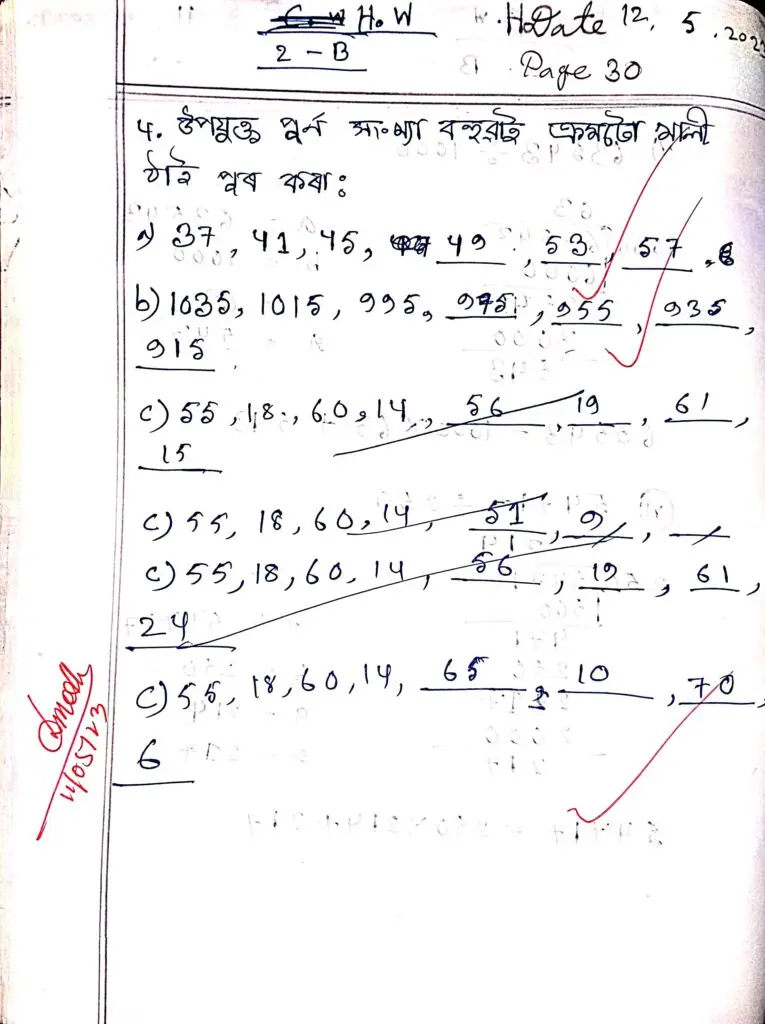 C.W H.W Date 12. 5. 202
2 - B Page 30
4. উপযুক্ত পূৰ্ন সাংখ্যা বহুৱাই ক্ৰমটো খালী
ঠাই পূৰ কৰা:
a) 37, 41, 45, 49, 53, 57.
b) 1035, 1015, 995, 975, 955, 935,
915
c) 55, 18, 60, 14, 56, 19, 61,
15
c) 55, 18, 60, 14, 51, 9,
c) 55, 18, 60, 14, 56, 19, 61,
24
c) 55, 18, 60, 14, 65, 10, 70,
6